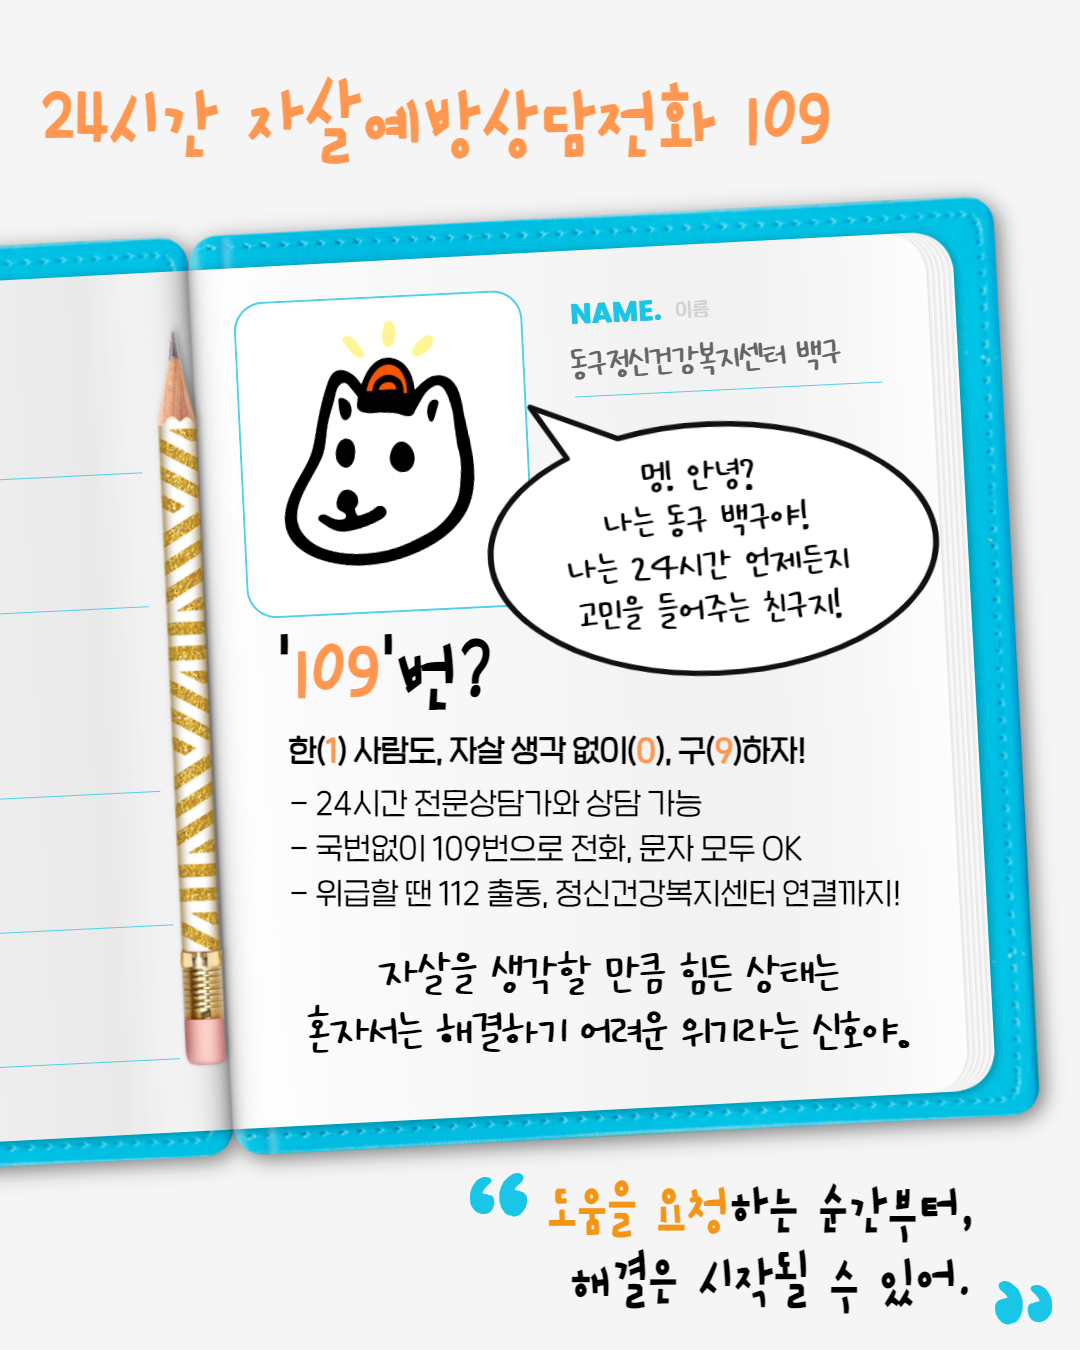 24시간 자살예방상담전화 109
NAME. 이름
동구정신건강복지센터 백구
멍! 안녕?
나는 동구 백구야!
나는 24시간 언제든지
고민을 들어주는 친구지!
'109'번?
한(1) 사람도, 자살 생각 없이(0), 구(9)하자!
- 24시간 전문상담가와 상담 가능
- 국번없이 109번으로 전화, 문자 모두 OK
- 위급할 땐 112 출동, 정신건강복지센터 연결까지!
자살을 생각할 만큼 힘든 상태는
혼자서는 해결하기 어려운 위기라는 신호야.
“ 도움을 요청하는 순간부터,
해결은 시작될 수 있어. ”